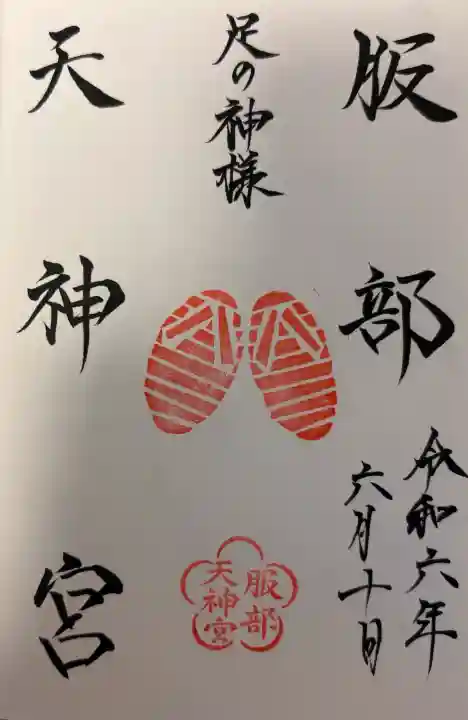 服部
令和六年
六月十日
足の神様
服部
天神宮
天神宮